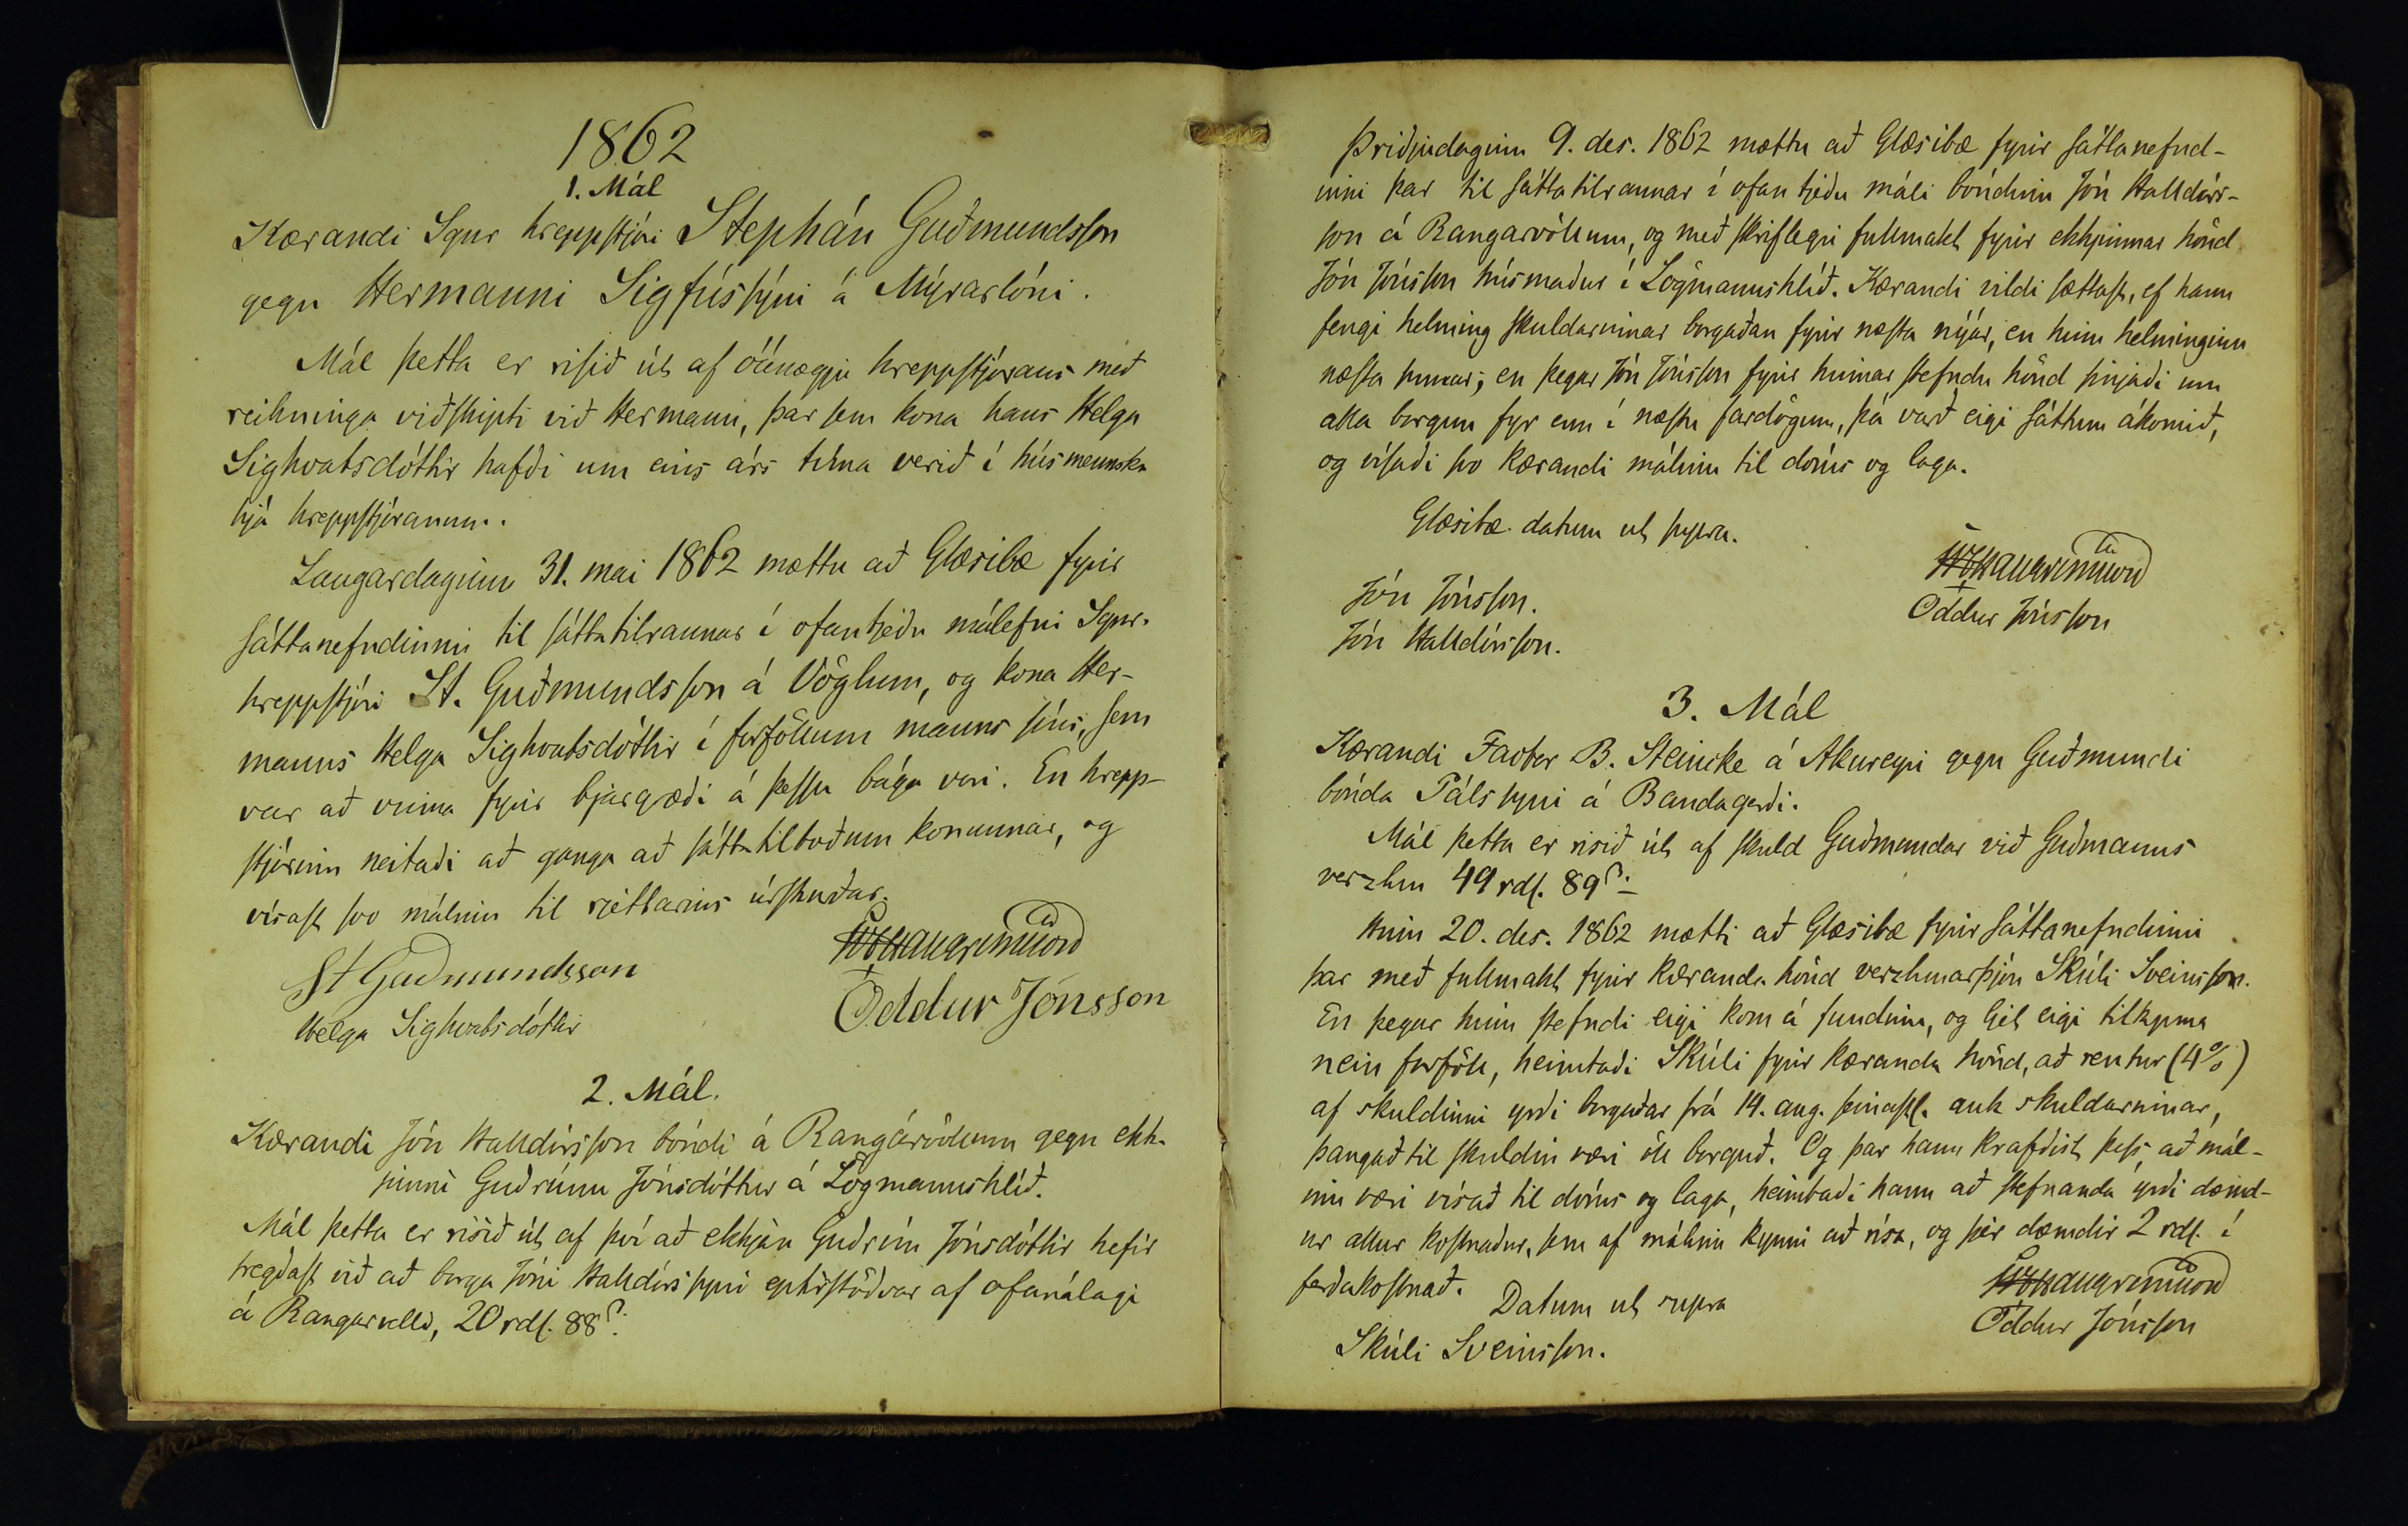 1862
1. Mál
Kærandi Sgnr hreppstjóri Stephán Guðmundsson
gegn Hermanni Sigfússýni á Mýrarlóni.
Mál þetta er risið út af óánægju hreppstjórans með
reikninga viðskipti við Hermann, þar sem kona hans Helga
Sighvatsdóttir hafði um eins árs tíma verið í húsmennsku
hjá hreppstjóranum.
Laugardaginn 31. mai 1862 mættu að Glæsibæ fyrir
sáttanefndinni til sáttatilraunar í ofantjeðu málefni Sgnr.
hreppstjóri St. Guðmundsson á Vöglum, og kona Her-
manns Helga Sighvatsdóttir í forföllum manns síns, sem
var að vinna fyrir bjargræði á þessu bága vori. En hrepp-
stjórinn neitaði að ganga að sáttatilboðum konunnar, og
vísast svo málinu til rjettarins úrskurðar.
St Guðmundsson
Helga Sighvatsdóttir
Oddur Jónsson
2. Mál.
Kærandi Jón Halldórsson bóndi á Rangárvöllum gegn ekk-
junni Guðrúnu Jónsdóttur á Lögmannshlíð.
Mál þetta er risið út af því að ekkjan Guðrún Jónsdóttir hefir
tregðast við að borga Jóni Halldórssyni eptirstöðvar af ofanálagi
á Rangárvelli, 20 rdl. 88 s.
Þriðjudaginn 9. des. 1862 mættu að Glæsibæ fyrir sáttanefnd-
inni þar til sáttatilraunar í ofan tjeðu máli bóndinn Jón Halldórs-
son á Rangarvöllum, og með skriflegri fullmakt fyrir ekkjunnar hönd
Jón Jónsson húsmaður í Lögmannshlíð. Kærandi vildi sættast, ef hann
fengi helming skuldarinnar borgaðan fyrir næsta nýár, en hinn helminginn
næsta sumar; en þegar Jón Jónsson fyrir hinnar stefndu hönd sinjaði um
alla borgun fyr enn í næstu fardögum, þá varð eigi sáttum ákomið,
og vísaði svo kærandi málinu til dóms og laga.
Glæsibæ datum ut supra.
Jón Jónsson.
Jón Halldórsson.
Oddur Jónsson
3. Mál
Kærandi Factor B. Steincke á Akureyri gegn Guðmundi
bónda Pálssyni á Bandagerði.
Mál þetta er risið út af skuld Guðmundar við Guðmanns
verzlun 49 rdl. 89 s.
Hinn 20. des. 1862 mætti að Glæsibæ fyrir sáttanefndinni
þar með fullmakt fyrir kæranda hönd verzlunarþjón Skúli Sveinsson.
En þegar hinn stefndi eigi kom á fundinn, og ljet eigi tilkynna
nein forföll, heimtaði Skúli fyrir kæranda hönd, að rentur (4%)
af skuldinni yrði borgaðar frá 14. aug. seinastl. auk skuldarinnar,
þangað til skuldin væri öll borguð. Og þar hann krafðist þess, að mál-
inu væri vísað til dóms og laga, heimtaði hann að stefnanda yrði dæmd-
ur allur kostnaður, sem af málinu kynni að rísa, og sér dæmdir 2 rdl. í
ferðakostnað.
Datum ut supra
Skúli Sveinsson.
Oddur Jónsson